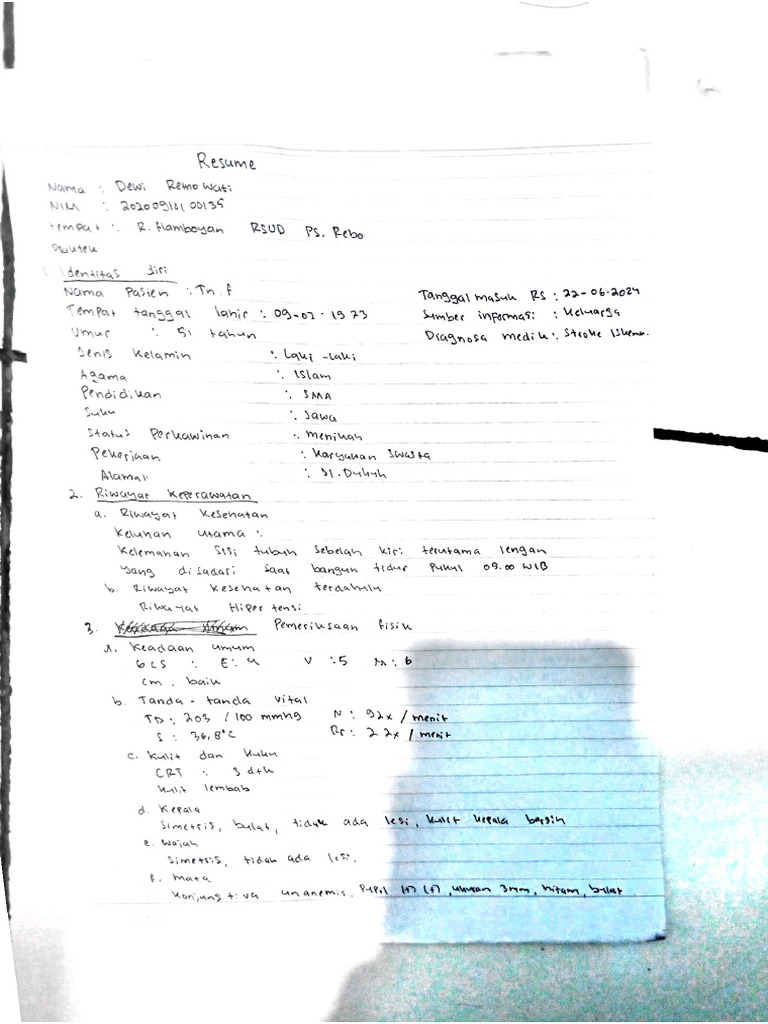 Resume
Nama : Dewi Retno Wati
NIM : 20200910100135
Tempat : R. Flamboyan RSUD Ps. Rebo
1. Identitas diri
Nama Pasien : Tn. F
Tanggal masuk RS : 22-06-2024
Tempat tanggal lahir : 09-07-1973
Sumber informasi : Keluarga
Umur : 51 tahun
Diagnosa medik : Stroke Iskemi.
Jenis Kelamin : Laki-laki
Agama : Islam
Pendidikan : SMA
Suku : Jawa
Status Perkawinan : Menikah
Pekerjaan : Karyawan Swasta
Alamat : Jl. Dukuh
2. Riwayat Keperawatan
a. Riwayat Kesehatan
Keluhan utama :
Kelemahan sisi tubuh sebelah kiri terutama lengan
yang disadari saat bangun tidur pukul 09.00 WIB
b. Riwayat kesehatan terdahulu
Riwayat Hipertensi
3. Pemeriksaan fisik
a. Keadaan umum
GCS : E : 4 V : 5 M : 6
cm. baik
b. Tanda-tanda vital
TD : 203 / 100 mmHg N : 92x / menit
S : 36,8°C Rr : 22x / menit
c. Kulit dan kuku
CRT : 3 dtk
Kulit lembab
d. Kepala
Simetris, bulat, tidak ada lesi, kulit kepala bersih
e. Wajah
Simetris, tidak ada lesi.
f. Mata
Konjungtiva ananemis. Pupil (+) (+), ukuran 3mm, hitam, bulat